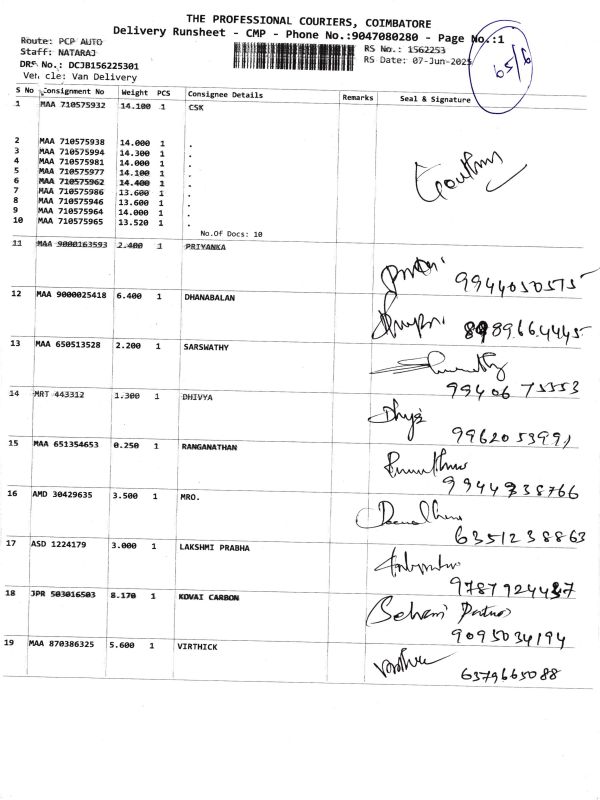 THE PROFESSIONAL COURIERS, COIMBATORE
Delivery Runsheet - CMP - Phone No.:9047080280 - Page No.:1
Route: PCP AUTO
Staff: NATARAJ
DRS No.: DCJB156225301
Vehicle: Van Delivery
RS No.: 1562253
RS Date: 07-Jun-2025
S No Consignment No Weight PCS Consignee Details Remarks Seal & Signature
1 MAA 710575932 14.100 1 CSK
2 MAA 710575938 14.000 1 .
3 MAA 710575994 14.300 1 .
4 MAA 710575981 14.000 1 .
5 MAA 710575977 14.100 1 .
6 MAA 710575962 14.400 1 .
7 MAA 710575986 13.600 1 .
8 MAA 710575946 13.600 1 .
9 MAA 710575964 14.000 1 .
10 MAA 710575965 13.520 1 .
No.Of Docs: 10
11 MAA 9000163593 2.400 1 PRIYANKA
9944050575
12 MAA 9000025418 6.400 1 DHANABALAN
13 MAA 650513528 2.200 1 SARSWATHY
9940675353
14 MRT 443312 1.300 1 DHIVYA
9962053991
15 MAA 651354653 0.250 1 RANGANATHAN
9944938766
16 AMD 30429635 3.500 1 MRO.
6351238863
17 ASD 1224179 3.000 1 LAKSHMI PRABHA
18 JPR 503016503 8.170 1 KOVAI CARBON
9095034194
19 MAA 870386325 5.600 1 VIRTHICK
6379665088